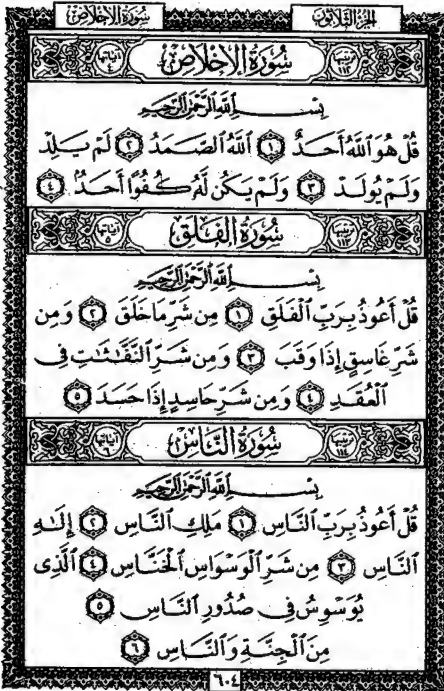 الجزء الثلاثون سورة الإخلاص
ترتيبها ١١٢ سُورَةُ الإِخْلَاصِ آياتها ٤
بِسْمِ اللَّهِ الرَّحْمَٰنِ الرَّحِيمِ
قُلْ هُوَ ٱللَّهُ أَحَدٌ ١ ٱللَّهُ ٱلصَّمَدُ ٢ لَمْ يَلِدْ
وَلَمْ يُولَدْ ٣ وَلَمْ يَكُن لَّهُۥ كُفُوًا أَحَدٌۢ ٤
ترتيبها ١١٣ سُورَةُ الفَلَقِ آياتها ٥
بِسْمِ اللَّهِ الرَّحْمَٰنِ الرَّحِيمِ
قُلْ أَعُوذُ بِرَبِّ ٱلْفَلَقِ ١ مِن شَرِّ مَا خَلَقَ ٢ وَمِن
شَرِّ غَاسِقٍ إِذَا وَقَبَ ٣ وَمِن شَرِّ ٱلنَّفَّٰثَٰتِ فِى
ٱلْعُقَدِ ٤ وَمِن شَرِّ حَاسِدٍ إِذَا حَسَدَ ٥
ترتيبها ١١٤ سُورَةُ النَّاسِ آياتها ٦
بِسْمِ اللَّهِ الرَّحْمَٰنِ الرَّحِيمِ
قُلْ أَعُوذُ بِرَبِّ ٱلنَّاسِ ١ مَلِكِ ٱلنَّاسِ ٢ إِلَٰهِ
ٱلنَّاسِ ٣ مِن شَرِّ ٱلْوَسْوَاسِ ٱلْخَنَّاسِ ٤ ٱلَّذِى
يُوَسْوِسُ فِى صُدُورِ ٱلنَّاسِ ٥
مِنَ ٱلْجِنَّةِ وَٱلنَّاسِ ٦
٦٠٤